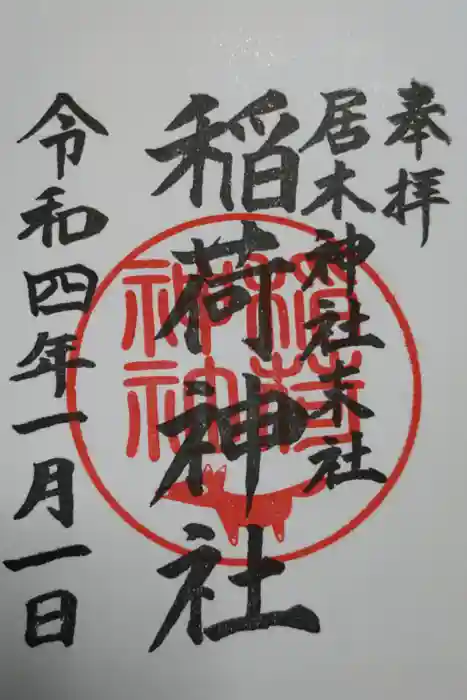 奉拝
居木神社末社
稲荷神社
令和四年一月一日
稲荷
神社